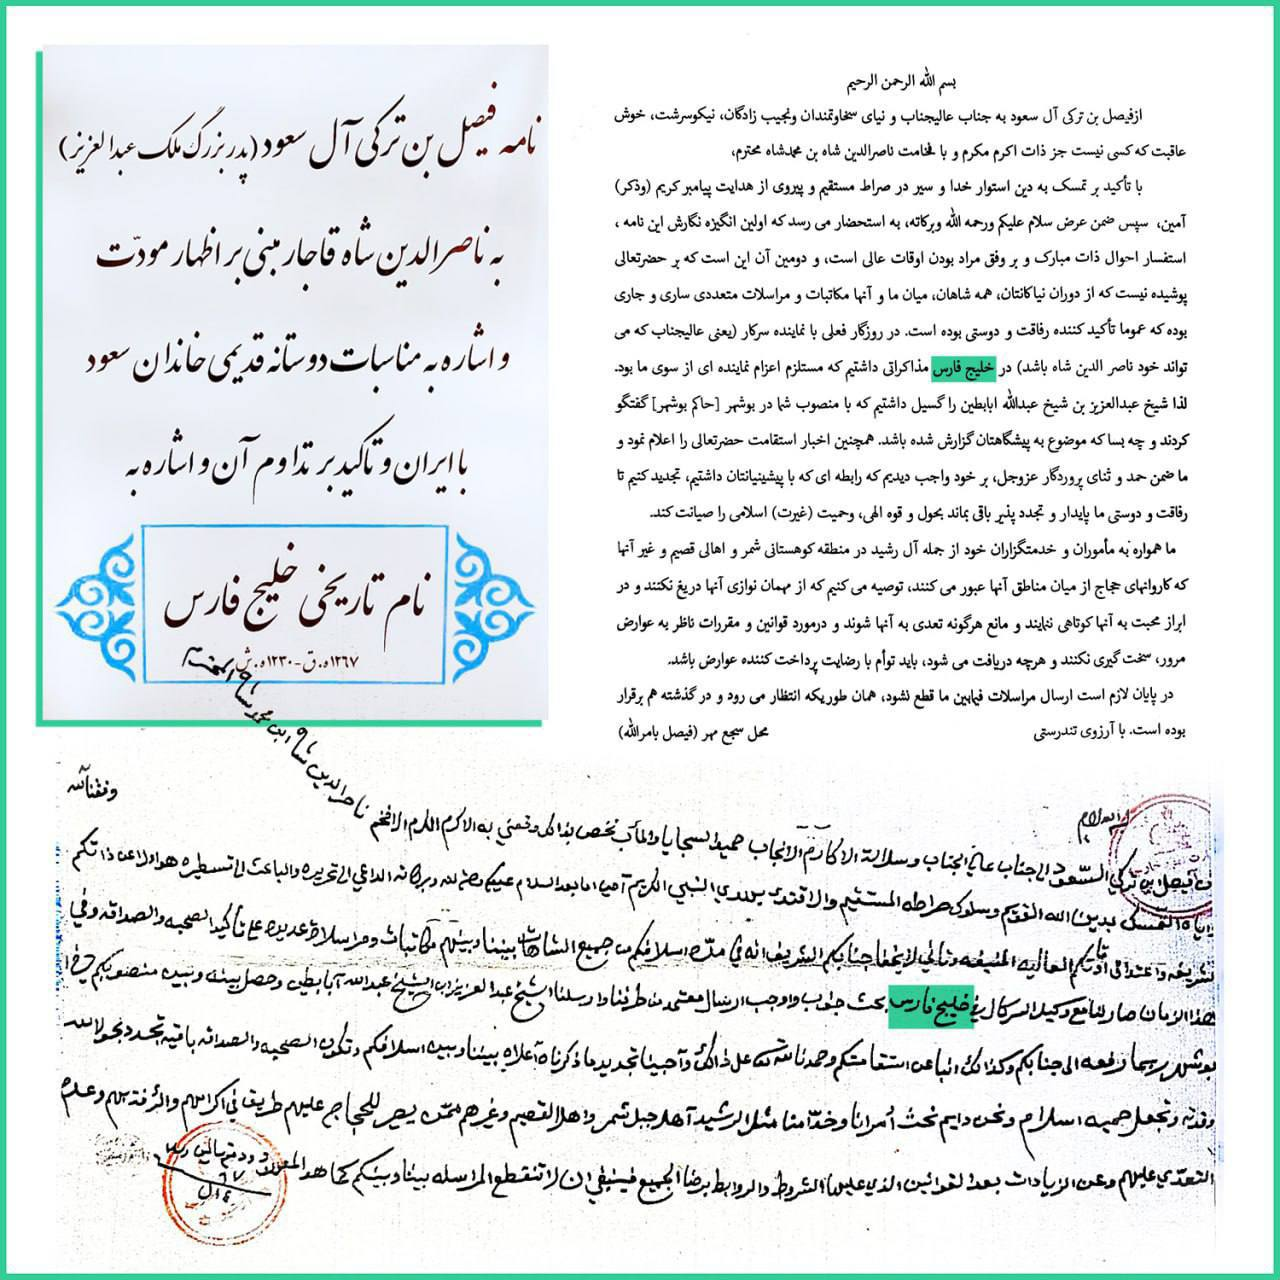 نامه فیصل بن ترکی آل سعود (پدربزرگ ملک عبدالعزیز)
به ناصرالدین شاه قاجار مبنی بر اظهار مودّت
و اشاره به مناسبات دوستانه قدیمی خاندان سعود
با ایران و تاکید بر تداوم آن و اشاره به
نام تاریخی خلیج فارس
۱۲۶۷ه.ق-۱۲۳۰ه.ش
بسم الله الرحمن الرحیم
ازفیصل بن ترکی آل سعود به جناب عالیجناب و نیای سخاوتمندان ونجیب زادگان، نیکوسرشت، خوش
عاقبت که کسی نیست جز ذات اکرم مکرم و با فخامت ناصرالدین شاه بن محمدشاه محترم،
با تأکید بر تمسک به دین استوار خدا و سیر در صراط مستقیم و پیروی از هدایت پیامبر کریم (وذکر)
آمین، سپس ضمن عرض سلام علیکم ورحمه الله وبرکاته، به استحضار می رسد که اولین انگیزه نگارش این نامه ،
استفسار احوال ذات مبارک و بر وفق مراد بودن اوقات عالی است، و دومین آن این است که بر حضرتعالی
پوشیده نیست که از دوران نیاکانتان، همه شاهان، میان ما و آنها مکاتبات و مراسلات متعددی ساری و جاری
بوده که عموما تأکید کننده رفاقت و دوستی بوده است. در روزگار فعلی با نماینده سرکار (یعنی عالیجناب که می
تواند خود ناصر الدین شاه باشد) در خلیج فارس مذاکراتی داشتیم که مستلزم اعزام نماینده ای از سوی ما بود.
لذا شیخ عبدالعزیز بن شیخ عبدالله ابابطین را گسیل داشتیم که با منصوب شما در بوشهر [حاکم بوشهر] گفتگو
کردند و چه بسا که موضوع به پیشگاهتان گزارش شده باشد. همچنین اخبار استقامت حضرتعالی را اعلام نمود و
ما ضمن حمد و ثنای پروردگار عزوجل، بر خود واجب دیدیم که رابطه ای که با پیشینیانتان داشتیم، تجدید کنیم تا
رفاقت و دوستی ما پایدار و تجدد پذیر باقی بماند بحول و قوه الهی، وحمیت (غیرت) اسلامی را صیانت کند.
ما همواره به مأموران و خدمتگزاران خود از جمله آل رشید در منطقه کوهستانی شمر و اهالی قصیم و غیر آنها
که کاروانهای حجاج از میان مناطق آنها عبور می کنند، توصیه می کنیم که از مهمان نوازی آنها دریغ نکنند و در
ابراز محبت به آنها کوتاهی ننمایند و مانع هرگونه تعدی به آنها شوند و درمورد قوانین و مقررات ناظر به عوارض
مرور، سخت گیری نکنند و هرچه دریافت می شود، باید توأم با رضایت پرداخت کننده عوارض باشد.
در پایان لازم است ارسال مراسلات فیمابین ما قطع نشود، همان طوریکه انتظار می رود و در گذشته هم برقرار
بوده است. با آرزوی تندرستی محل سجع مهر (فیصل بامرالله)
ناصر الدین شاه ابن محمد شاه المحترم
وفقنا الله
والسلام
من فیصل بن تركي السعود الى جناب عالي الجناب وسلالة الاكارم الانجاب حميد السجايا والمأب نخص بذالك ونعني به الاكرم المكرم الافخم
التمسك بدين الله القويم وسلوك صراطه المستقيم والاقتدى بهدي النبي الكريم آمين اما بعد السلام عليكم ورحمة الله وبركاته الداعي الى تحريره والباعث الى تسطيره هو اولا عن ذاتكم
الشريفه واعتدال اوقاتكم العاليه المنيفه وثاني لا يخفا جنابكم الشريف انه في مدة اسلافكم من جميع الشاهات بيننا وبينهم مكاتبات ومراسلات عديده على تأكيد الصحبه والصداقه وفي
هذا الزمان صار لنا مع وكيل السركال في خليج فارس بحث جنوب واوجب ارسال معتمد من طرفنا وارسلنا الشيخ عبد العزيز ابن الشيخ عبد الله آبابطين وحصل بينه وبين منصوبكم في
بوشهر ربما رفعه الى جنابكم وكذالك انبا عن استقامتكم وحمدنا الله على ذالك وأحببنا تجديد ما ذكرناه أعلاه بيننا وبين اسلافكم وتكون الصحبه والصداقه باقيه تجدد بحول الله
وقوته وتجعل حميه اسلام ونحن دايم نحث أمرانا وخدّامنا مثل الرشيد آهل جبل شمر واهل القصيم وغيرهم ممّن يصير للحجاج عليهم طريق في اكرامهم والرفقه بهم وعدم
التعدّي عليهم وعن الزيادات بعد القوانين الذي عليها الشروط والروابط برضا الجميع فينبغي ان لا تنقطع المراسله بيننا وبينكم كما هو المعروف